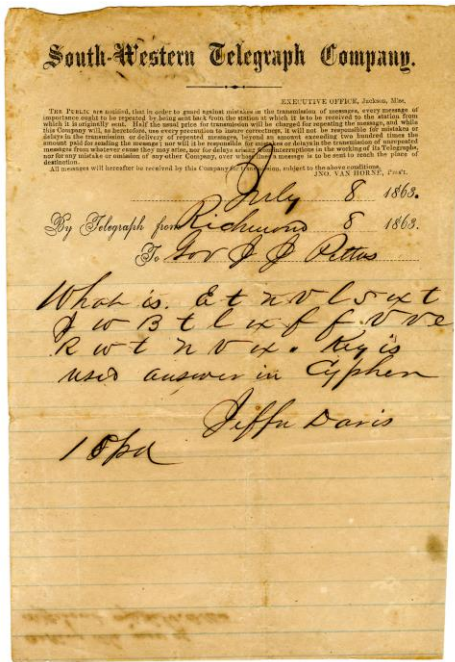 South-Western Telegraph Company.
EXECUTIVE OFFICE, Jackson, Miss.
THE PUBLIC are notified, that in order to guard against mistakes in the transmission of messages, every message of
importance ought to be repeated by being sent back from the station at which it is to be received to the station from
which it is originally sent. Half the usual price for transmission will be charged for repeating the message, and while
this Company will, as heretofore, use every precaution to insure correctness, it will not be responsible for mistakes or
delays in the transmission or delivery of repeated messages, beyond an amount exceeding two hundred times the
amount paid for sending the message; nor will it be responsible for mistakes or delays in the transmission of unrepeated
messages from whatever cause they may arise, nor for delays arising from interruptions in the working of its Telegraphs,
nor for any mistake or omission of any other Company, over whose lines a message is to be sent to reach the place of
destination.
All messages will hereafter be received by this Company for transmission, subject to the above conditions.
JNO. VAN HORNE, Pres't.
July 8 1863.
By Telegraph from Richmond 8 1863.
To Gov J J Pettus
What is. E t n v l 5 x t
J w B t l x f f v v e
R w t n v x. Key is
used answer in Cypher
Jeffn Davis
18pd